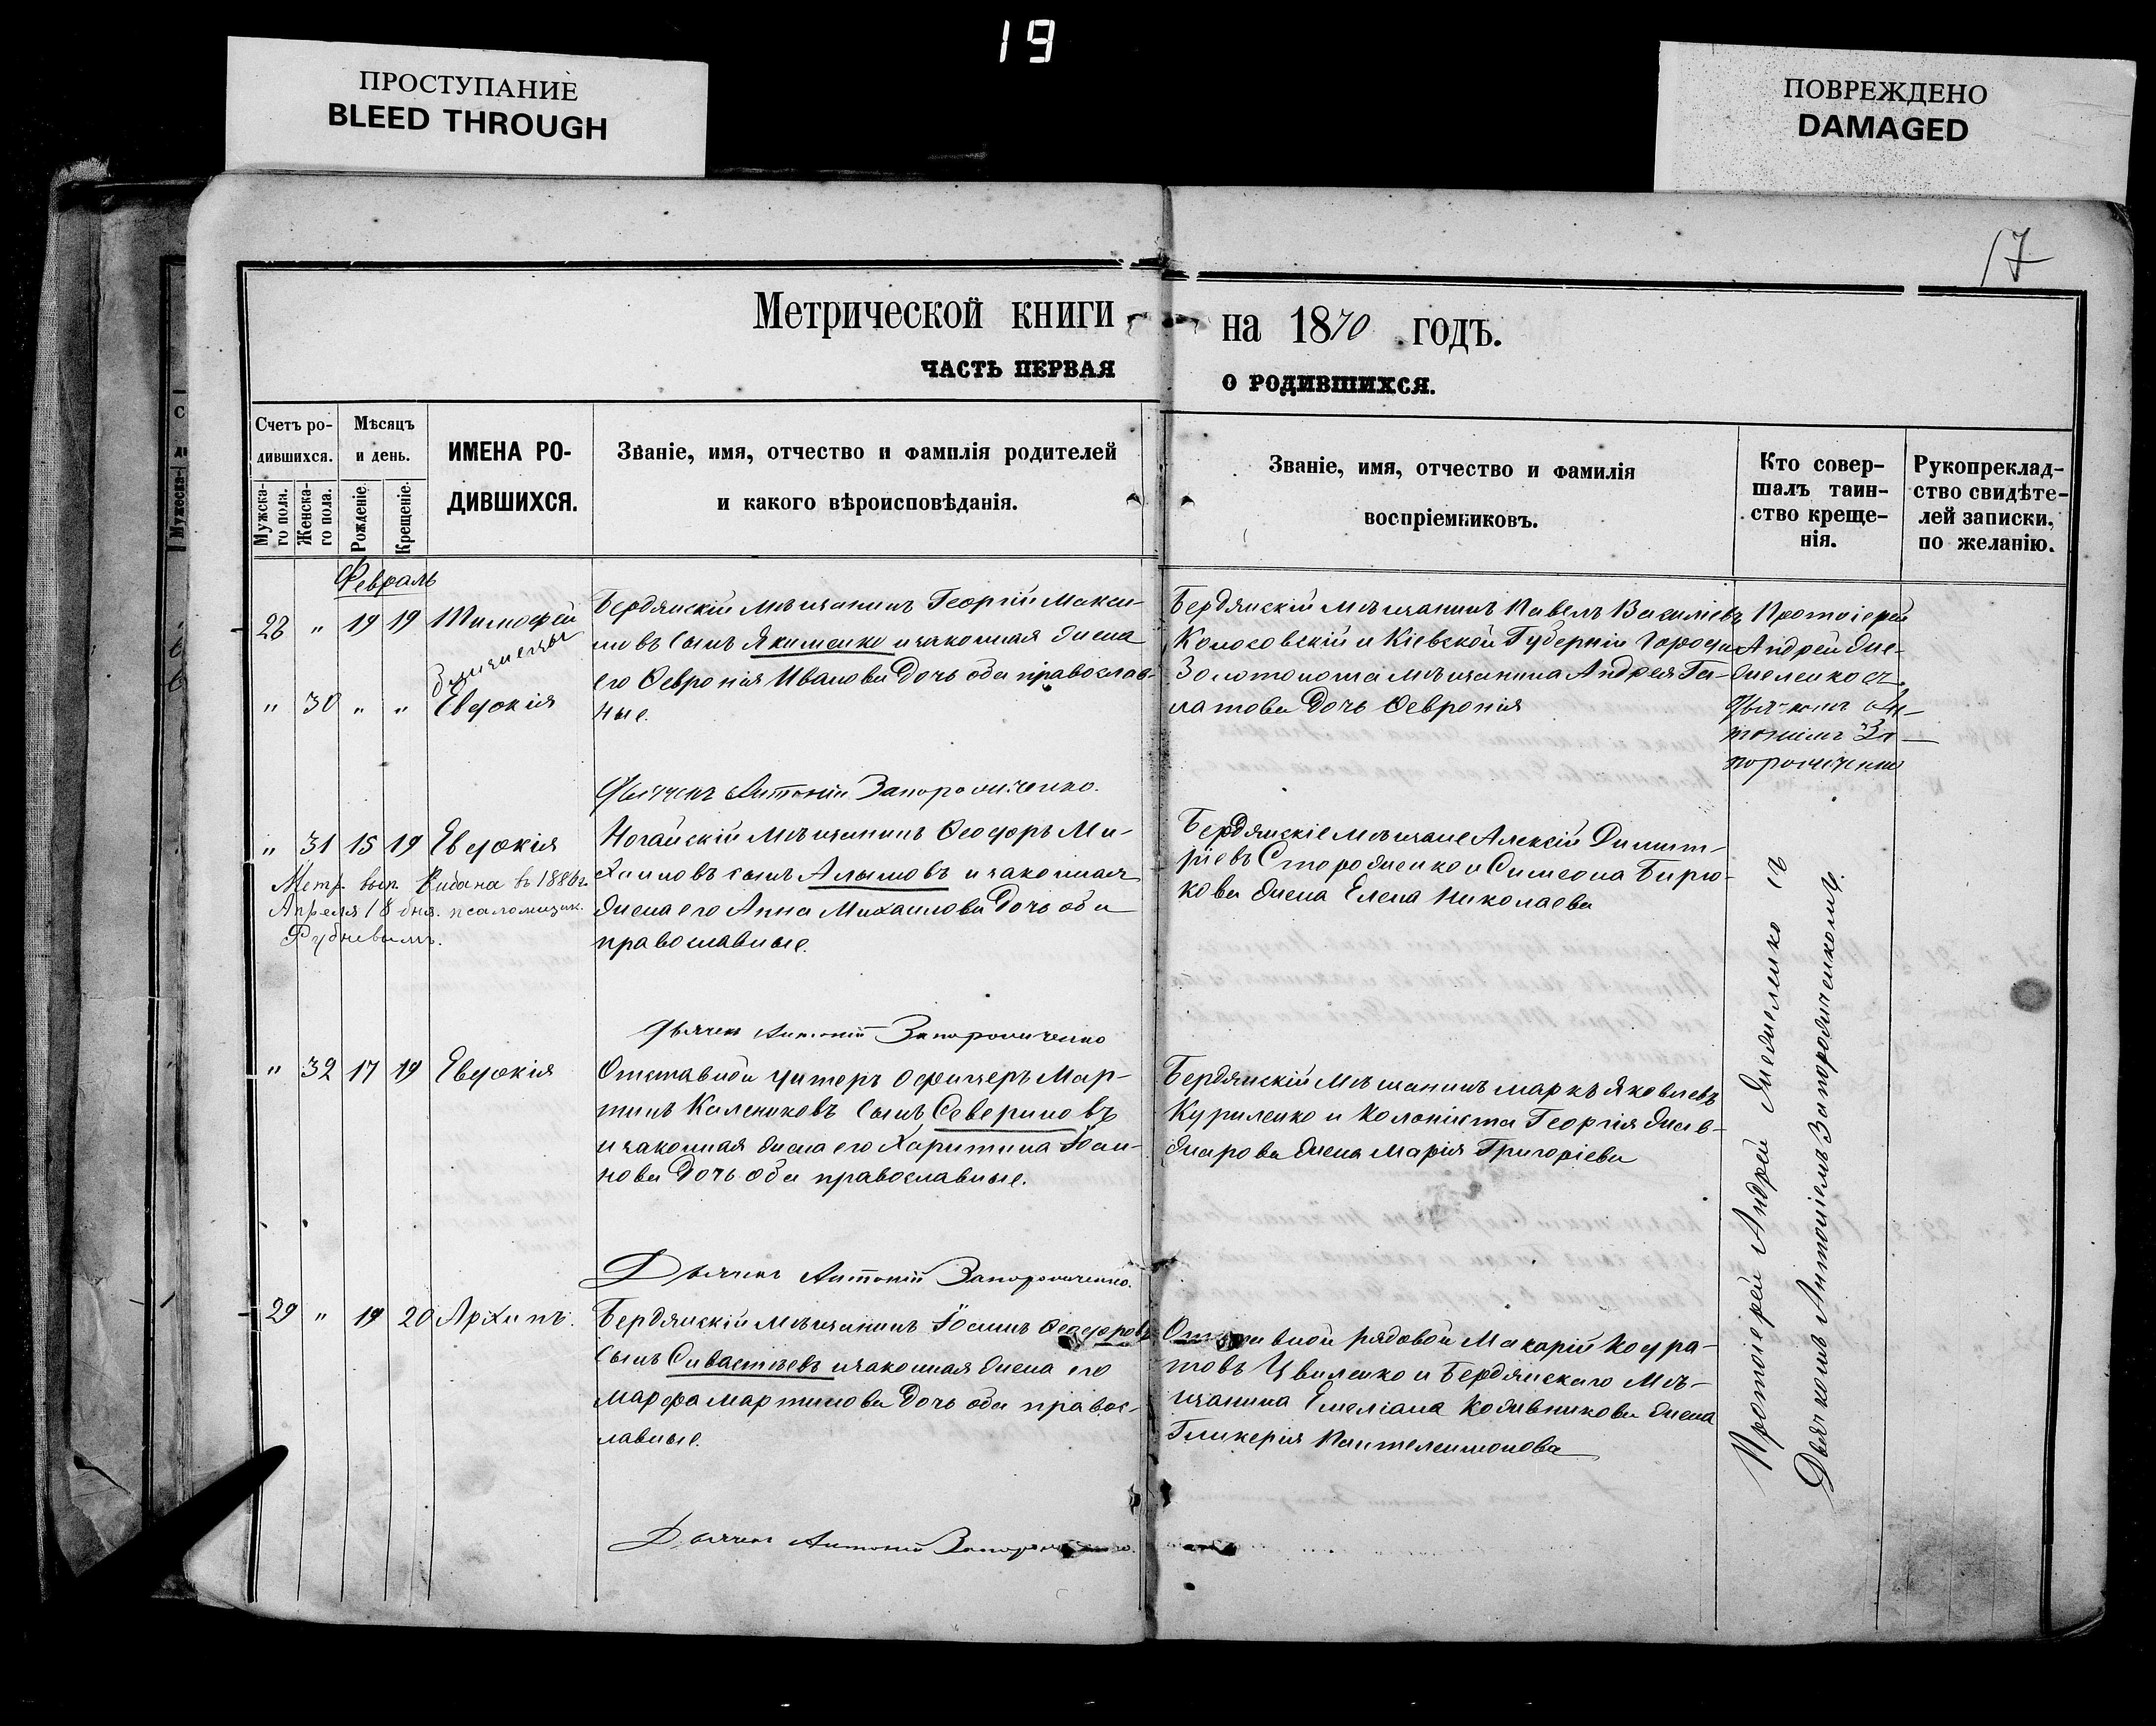 19
ПРОСТУПАНИЕ
BLEED THROUGH
ПОВРЕЖДЕНО
DAMAGED
17
Метрической книги на 1870 годъ.
ЧАСТЬ ПЕРВАЯ О РОДИВШИХСЯ.
Счетъ ро-
дившихся.
Мужска-
го пола.
Женска-
го пола.
Мѣсяцъ
и день.
Рожденіе.
Крещеніе.
ИМЕНА РО-
ДИВШИХСЯ.
Званіе, имя, отчество и фамилія родителей
и какого вѣроисповѣданія.
Званіе, имя, отчество и фамилія
воспріемниковъ.
Кто совер-
шалъ таин-
ство креще-
нія.
Рукопреклад-
ство свидѣте-
лей записки,
по желанію.
Февраль
28 " 19 19 Тимофей
близнецы
" 30 " " Евдокія
Бердянскій мѣщанинъ Георгій Макси-
мовъ сынъ Якименко и законная жена
его Февронія Иванова дочь оба православ-
ные.
Бердянскій мѣщанинъ Павелъ Василіевъ
Колосовскій и Кіевской Губерніи города
Золотоноша мѣщанина Андрея Га-
латова дочь Февронія
Протоіерей
Андрей Же-
желенко съ
Дьячкомъ Ан-
тоніемъ За-
порожченко
Дьячекъ Антоній Запорожченко.
" 31 15 19 Евдокія
Метр. вып. выдана въ 1886 г.
Апреля 18 дня. псаломщик.
Рудневымъ.
Ногайскій мѣщанинъ Феодоръ Ми-
хаиловъ сынъ Алымовъ и законная
жена его Анна Михаилова дочь оба
православные.
Бердянскіе мѣщане Алексій Димит-
ріевъ Стороженко и Симеона Бирю-
кова жена Елена Николаева
Дьячекъ Антоній Запорожченко
" 32 17 19 Евдокія
Отставной унтеръ офицеръ Мар-
тинъ Калениковъ сынъ Севериновъ
и законная жена его Харитина Іоан-
нова дочь оба православные.
Бердянскій мѣщанинъ Маркъ Яковлевъ
Куриленко и колониста Георгія
жена Марія Григоріева
Дьячекъ Антоній Запорожченко.
29 " 19 20 Архипъ.
Бердянскій мѣщанинъ Іоаннъ Феодоровъ
сынъ Сивастьевъ и законная жена его
Марфа Мартинова дочь оба правос-
лавные.
Отставной рядовой Макарій Кодра-
товъ Цвиленко и Бердянскаго мѣ-
щанина Емеліана Кожевникова жена
Гликерія Пантелеимонова
Дьячекъ Антоній Запорожченко.
Протоіерей Андрей Жежеленко съ
Дьячкомъ Антоніемъ Запорожченкомъ.